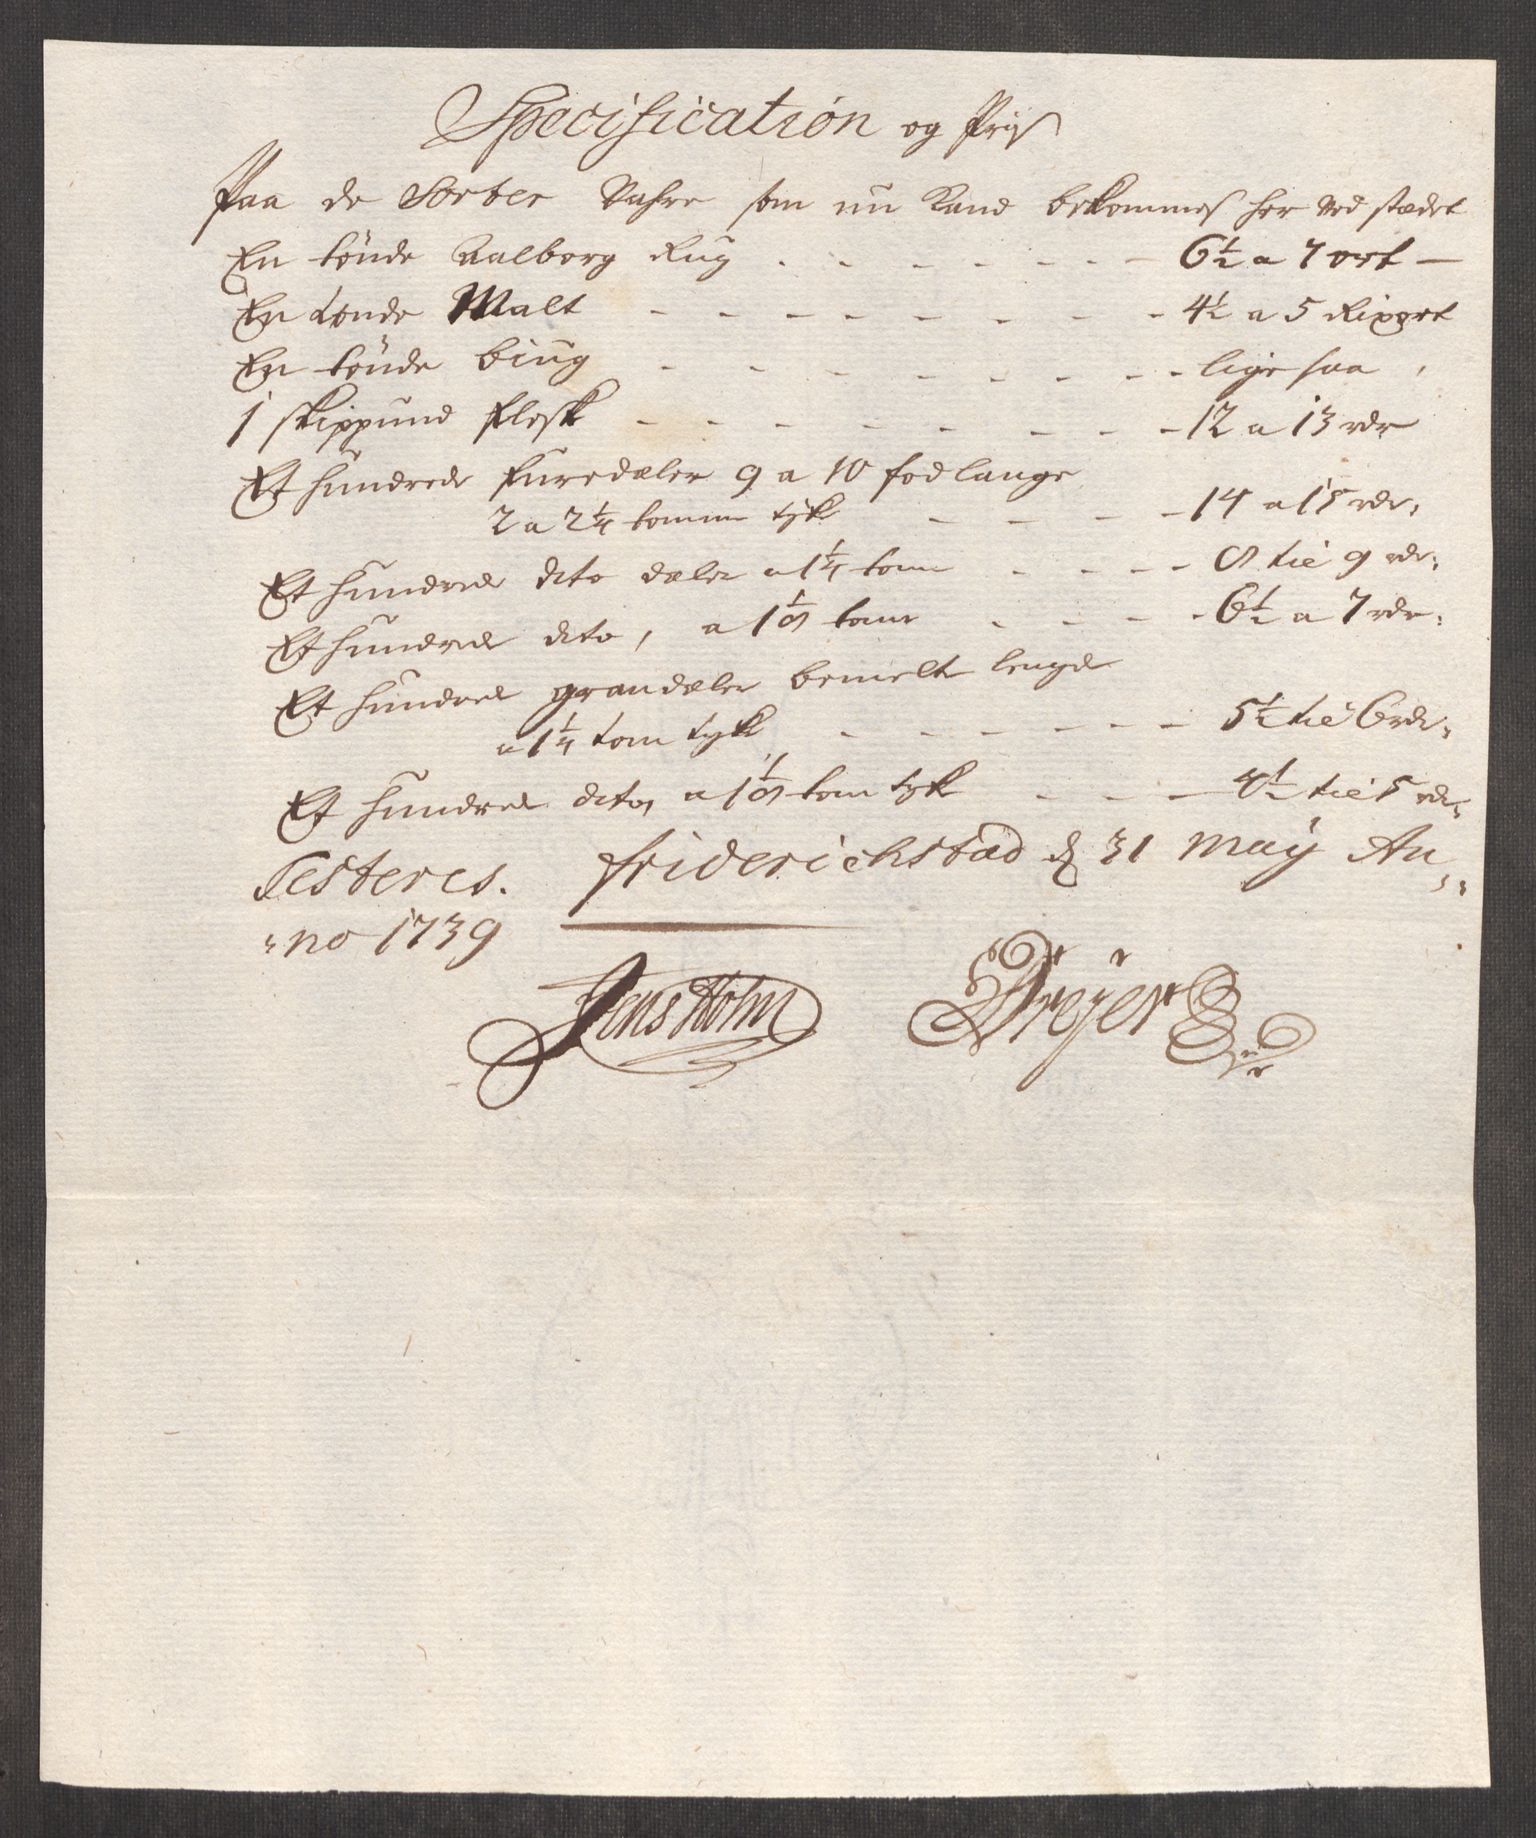 Specification og Priss
Paa de Sorter Vahre som nu Kand bekommes her ved stædet
En tönde Aalborg Rug - - - - - - - 6½ a 7 ort -
En tönde Malt - - - - - - - - - 4½ a 5 Rixort
En tönde biug - - - - - - - - - lige saa
1 skippund flesk - - - - - - - - - 12 a 13 rdr
Et hundrede furedæler 9 a 10 fod lange
2 a 2¼ tomme tÿk - - - - 14 a 15 rdr:
Et hundrede dito dæler a 1¼ tom - - - - 8 tie 9 rdr:
Et hundrede dito, a 1⅛ tom - - - - 6½ a 7 rdr:
Et hundrede grandæler bemelte lengde
a 1¼ tom tyk - - - - - - 5½ tie 6 rdr:
Et hundrede dito, a 1⅛ tom tyk - - - 4½ tie 5 rdr:
Testeres. friderichstad d 31 Maÿ An„
„no 1739
Jens Holm Dreÿer